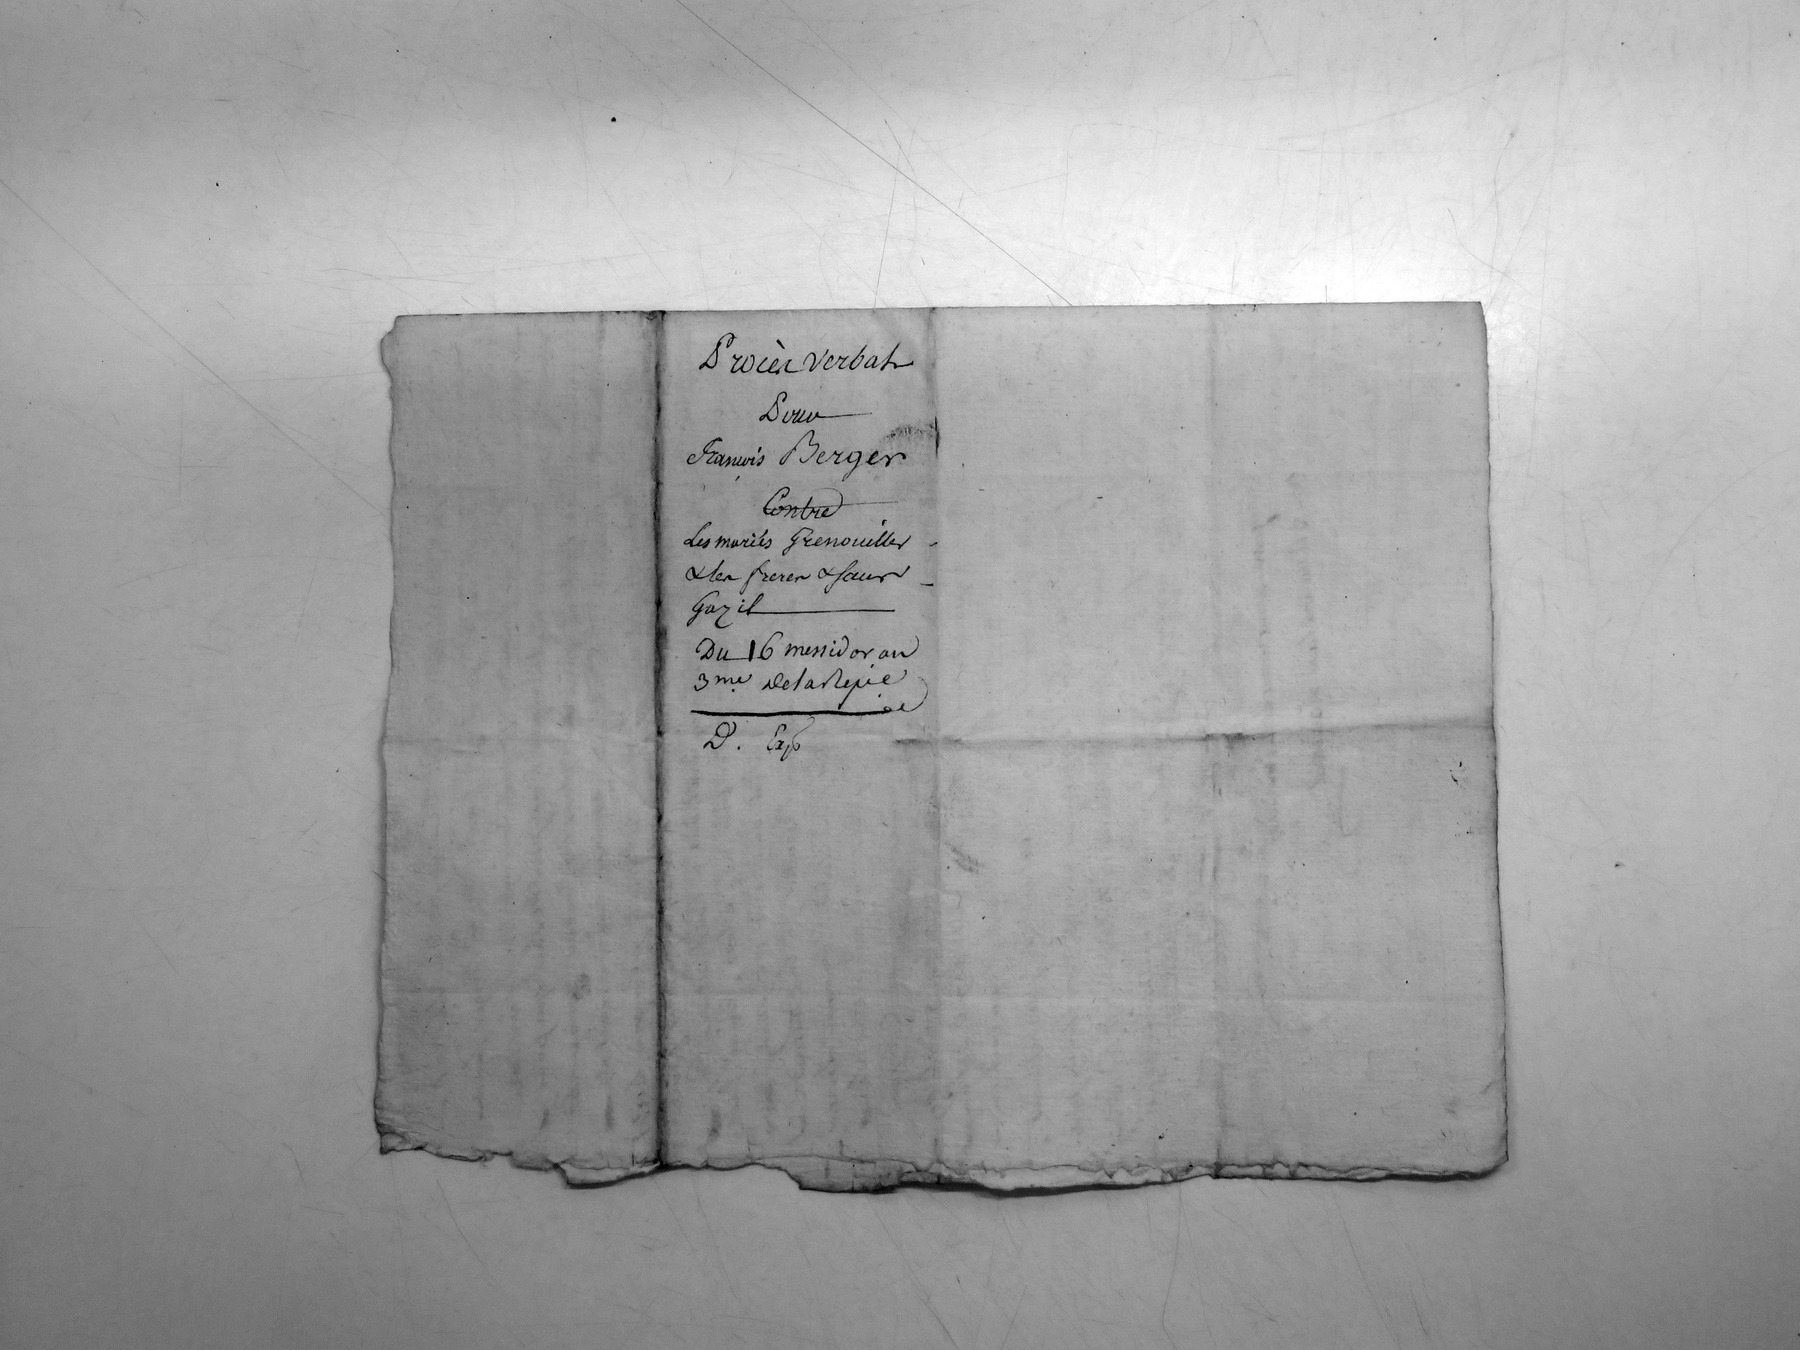 Procès verbal
Pour
François Berger
Contre
Les mariés Grenouiller
& les freres & saurs
Gazil
Du 16 messidor an
3me. de la Repie
D. Exp